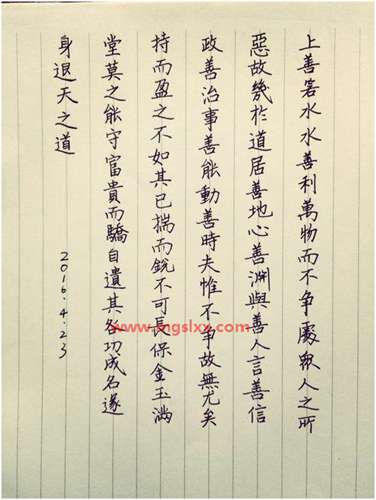 上善若水水善利萬物而不争處眾人之所
惡故幾於道居善地心善渊與善人言善信
政善治事善能動善時夫惟不争故無尤矣
持而盈之不如其已揣而銳不可長保金玉滿
堂莫之能守富貴而驕自遺其咎功成名遂
身退天之道 2016.4.23
www.mgslxx.com